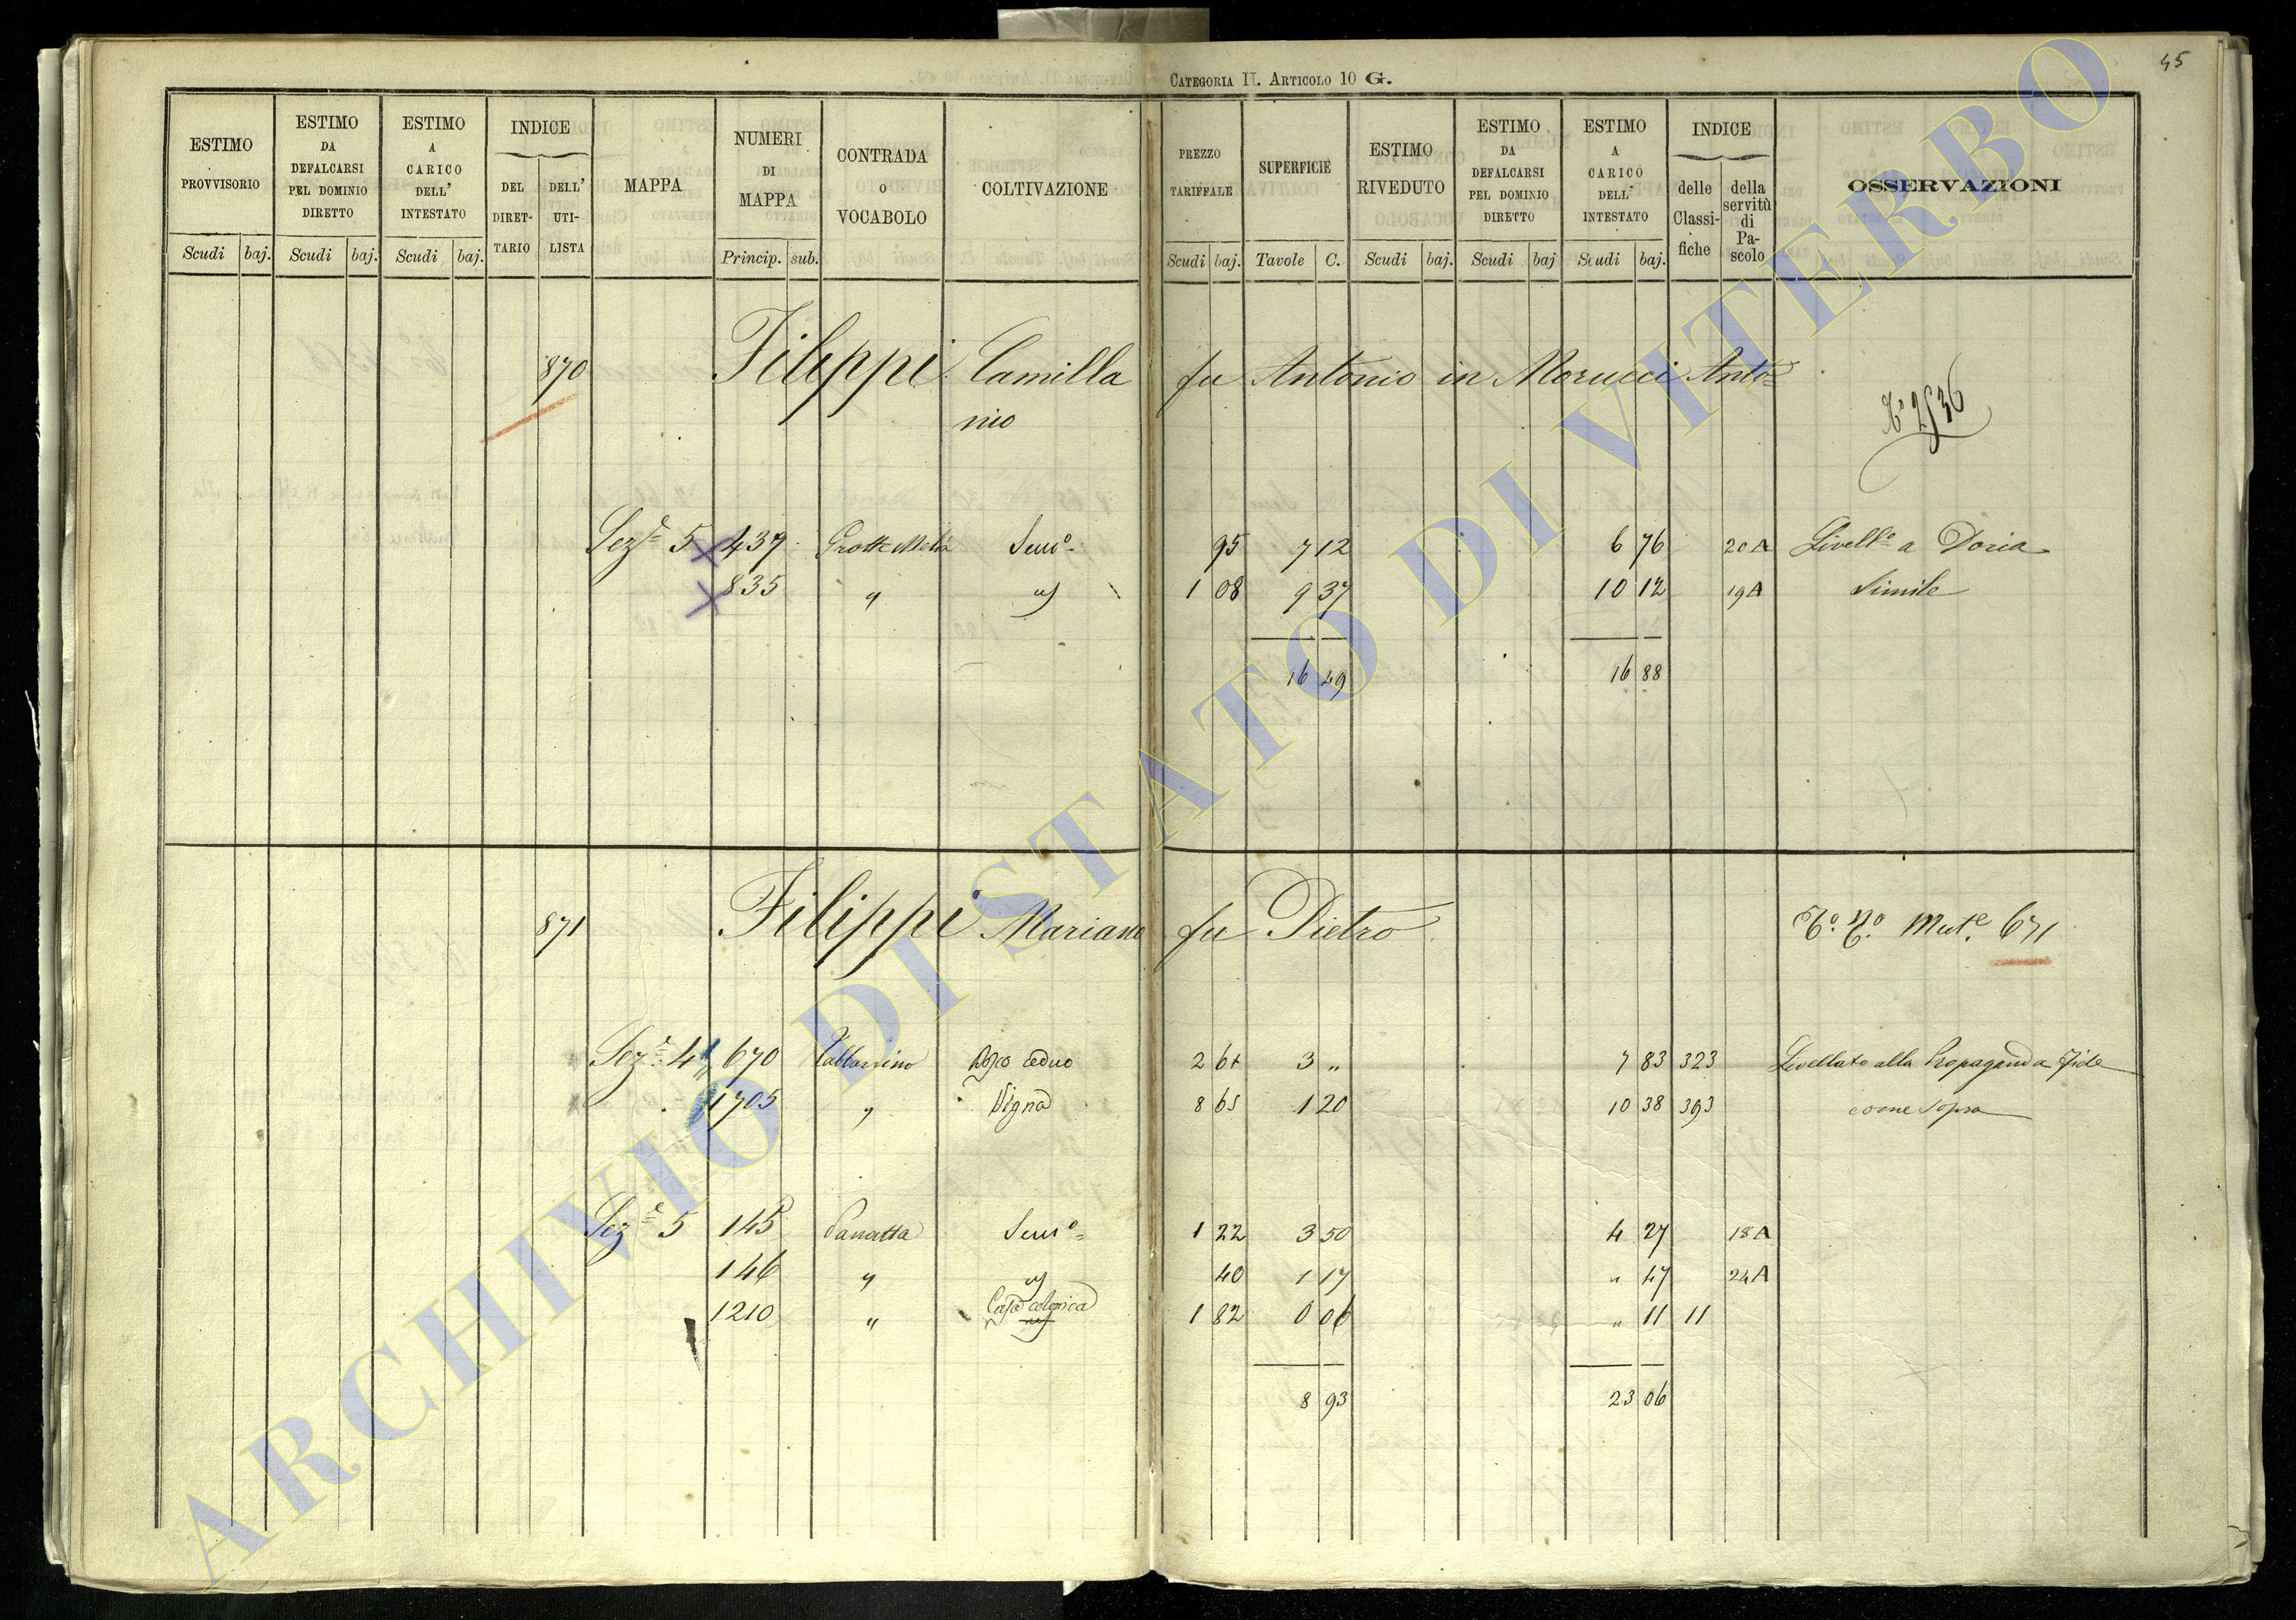 CATEGORIA II. ARTICOLO 10 G.
45
ESTIMO PROVVISORIO
ESTIMO DA DEFALCARSI PEL DOMINIO DIRETTO
ESTIMO A CARICO DELL' INTESTATO
INDICE
DEL DIRET-TARIO
DELL' UTI-LISTA
MAPPA
NUMERI DI MAPPA
CONTRADA O VOCABOLO
COLTIVAZIONE
PREZZO TARIFFALE
SUPERFICIE
ESTIMO RIVEDUTO
ESTIMO DA DEFALCARSI PEL DOMINIO DIRETTO
ESTIMO A CARICO DELL' INTESTATO
INDICE
delle Classi-fiche
della servitù di Pa-scolo
OSSERVAZIONI
Scudi baj. Scudi baj. Scudi baj. Princip. sub. Scudi baj. Tavole C. Scudi baj. Scudi baj Scudi baj.
870 Filippi Camilla fu Antonio in Morucci Anto=
nio
Sez.e 5 439 Sem.o 95 7 12 6 76 20A Livell.o a Doria
835 " " 1 08 9 37 10 12 19A Simile
16 49 16 88
871 Filippi Mariano fu Pietro Mut.e 671
Sez.e 4 670 Bosco ceduo 2 61 3 " 7 83 323 Livellato alla Propaganda Fide
1705 " Vigna 8 65 1 20 10 38 393 come sopra
Sez.e 5 145 Panatta Sem.o 1 22 3 50 4 27 18A
146 " " 40 1 17 " 47 24A
1210 " Casa colonica 1 82 0 06 " 11 11
8 93 23 06
ARCHIVIO DI STATO DI VITERBO